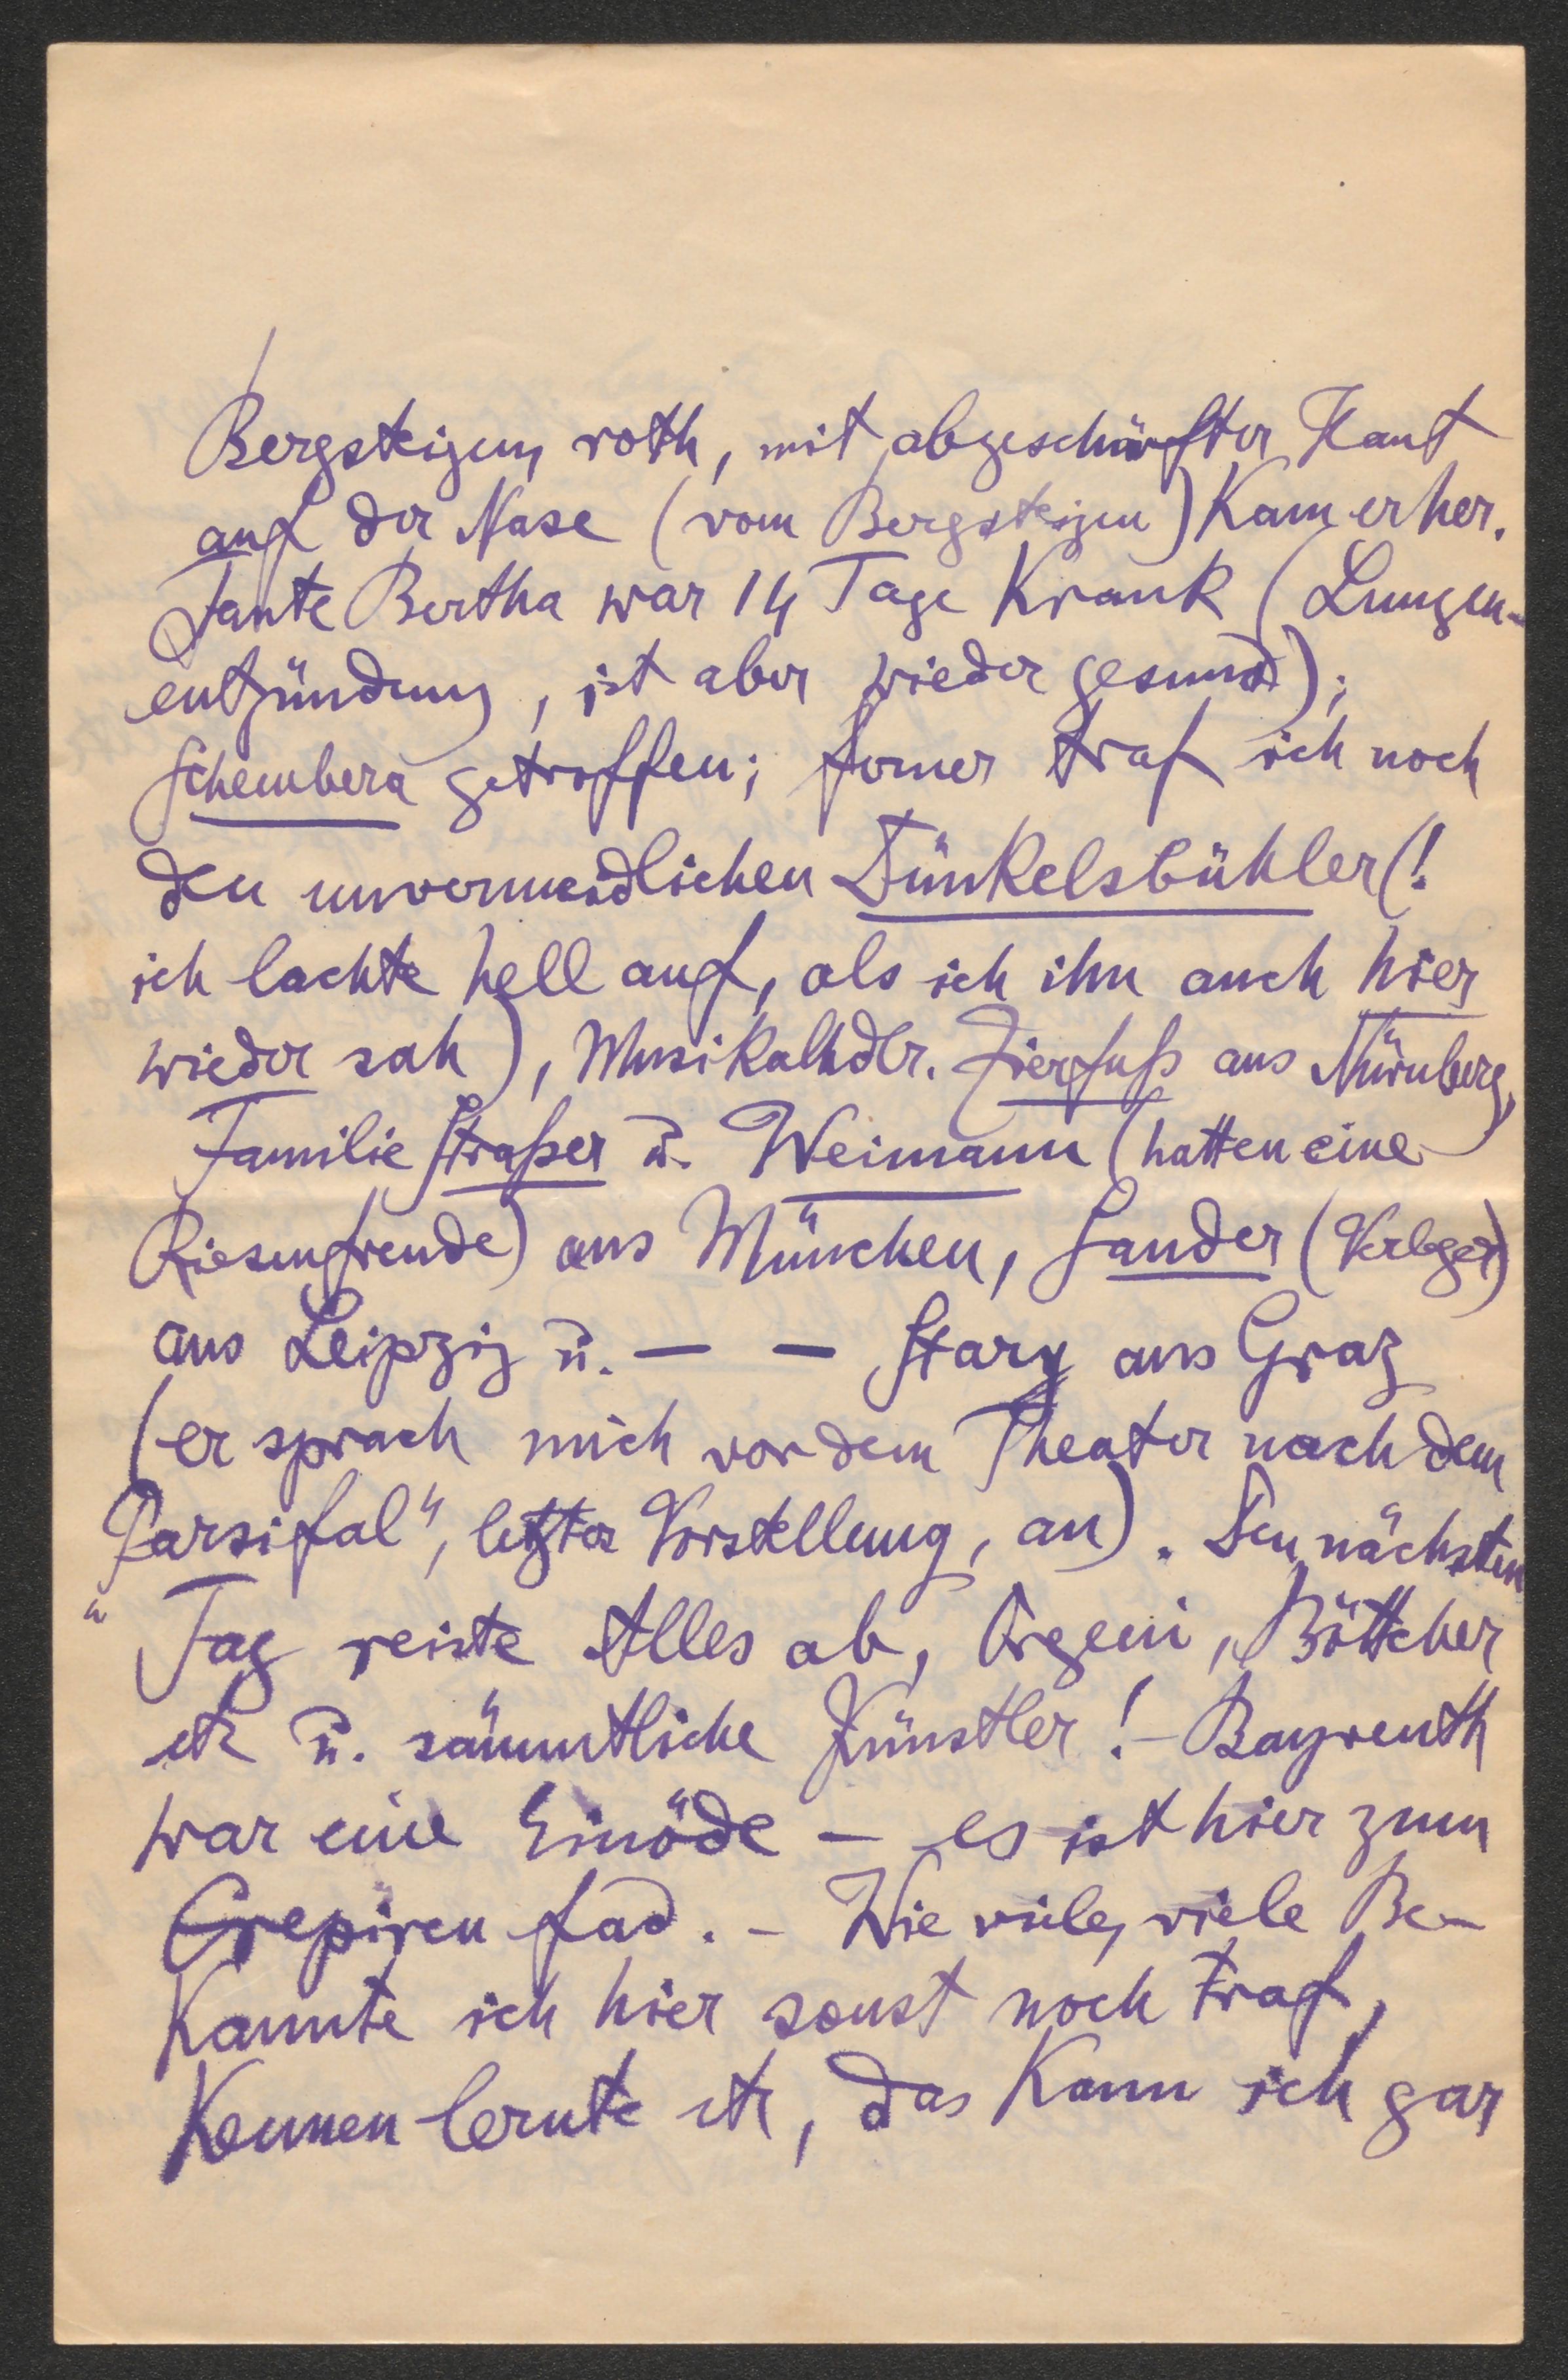 Bergsteigen, roth, mit abgeschürfter Haut
auf der Nase (vom Bergsteigen) Kam er her.
Tante Bertha war 14 Tage Krank (Lungen-
entzündung, ist aber wieder gesund);
Schembera getroffen; ferner traf ich noch
den unvermeidlichen Dünkelsbühler (!
ich lachte hell auf, als ich ihn auch hier
wieder sah), Musikalhdlr. Zierfuß aus Nürnberg,
Familie Straßer u. Weimann (hatten eine
Riesenfreude) aus München, Sander (Verleger)
aus Leipzig u. — — Stary aus Graz
(er sprach mich vor dem Theater nach dem
„Parsifal“, letzter Vorstellung, an). Den nächsten
Tag reiste Alles ab, Orgeni, Böttcher
etc u. sämmtliche Künstler! – Bayreuth
war eine Einöde – es ist hier zum
Crepiren fad. – Wie viele, viele Be-
Kannte ich hier sonst noch traf,
Kennen lernte etc, das Kann ich gar